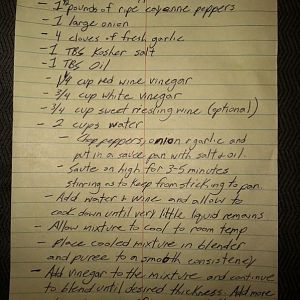 - 1 1/2 pounds of ripe cayenne peppers
- 1 large onion
- 4 cloves of fresh garlic
- 1 TBS Kosher salt
- 1 TBS Oil
- 1 1/4 cup red wine vinegar
- 3/4 cup white vinegar
- 3/4 cup sweet riesling wine (optional)
- 2 cups water
- Chop peppers, onion & garlic and
put in a sauce pan with salt & oil.
- Saute on high for 3-5 minutes
stirring as to keep from sticking to pan.
- Add water & wine and allow to
cook down until very little liquid remains
- Allow mixture to cool to room temp
- Place cooled mixture in blender
and puree to a smooth consistency
- Add vinegar to the mixture and continue
to blend until desired thickness. Add more